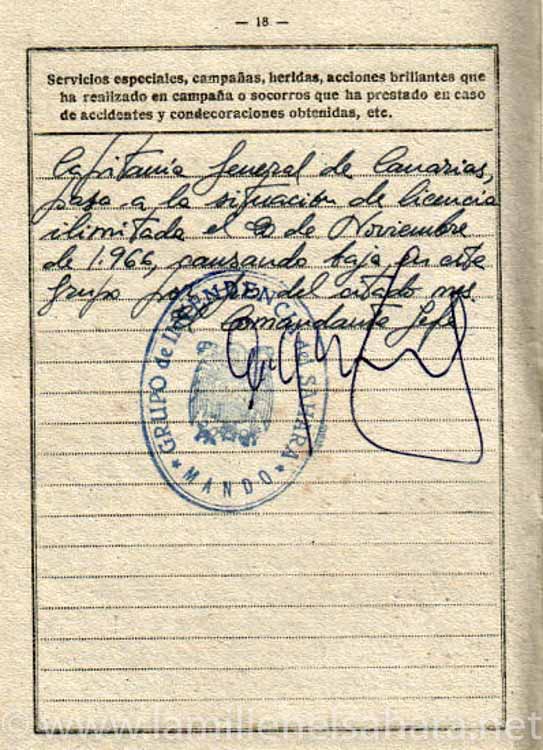 — 18 —
Servicios especiales, campañas, heridas, acciones brillantes que
ha realizado en campaña o socorros que ha prestado en caso
de accidentes y condecoraciones obtenidas, etc.
Capitanía General de Canarias,
pasa a la situación de licencia
ilimitada el de Noviembre
de 1.966, causando baja en este
Grupo por fin del citado mes
El Comandante Jefe
GRUPO de INTENDENCIA del SAHARA
* MANDO *
© www.lamilienelsahara.net